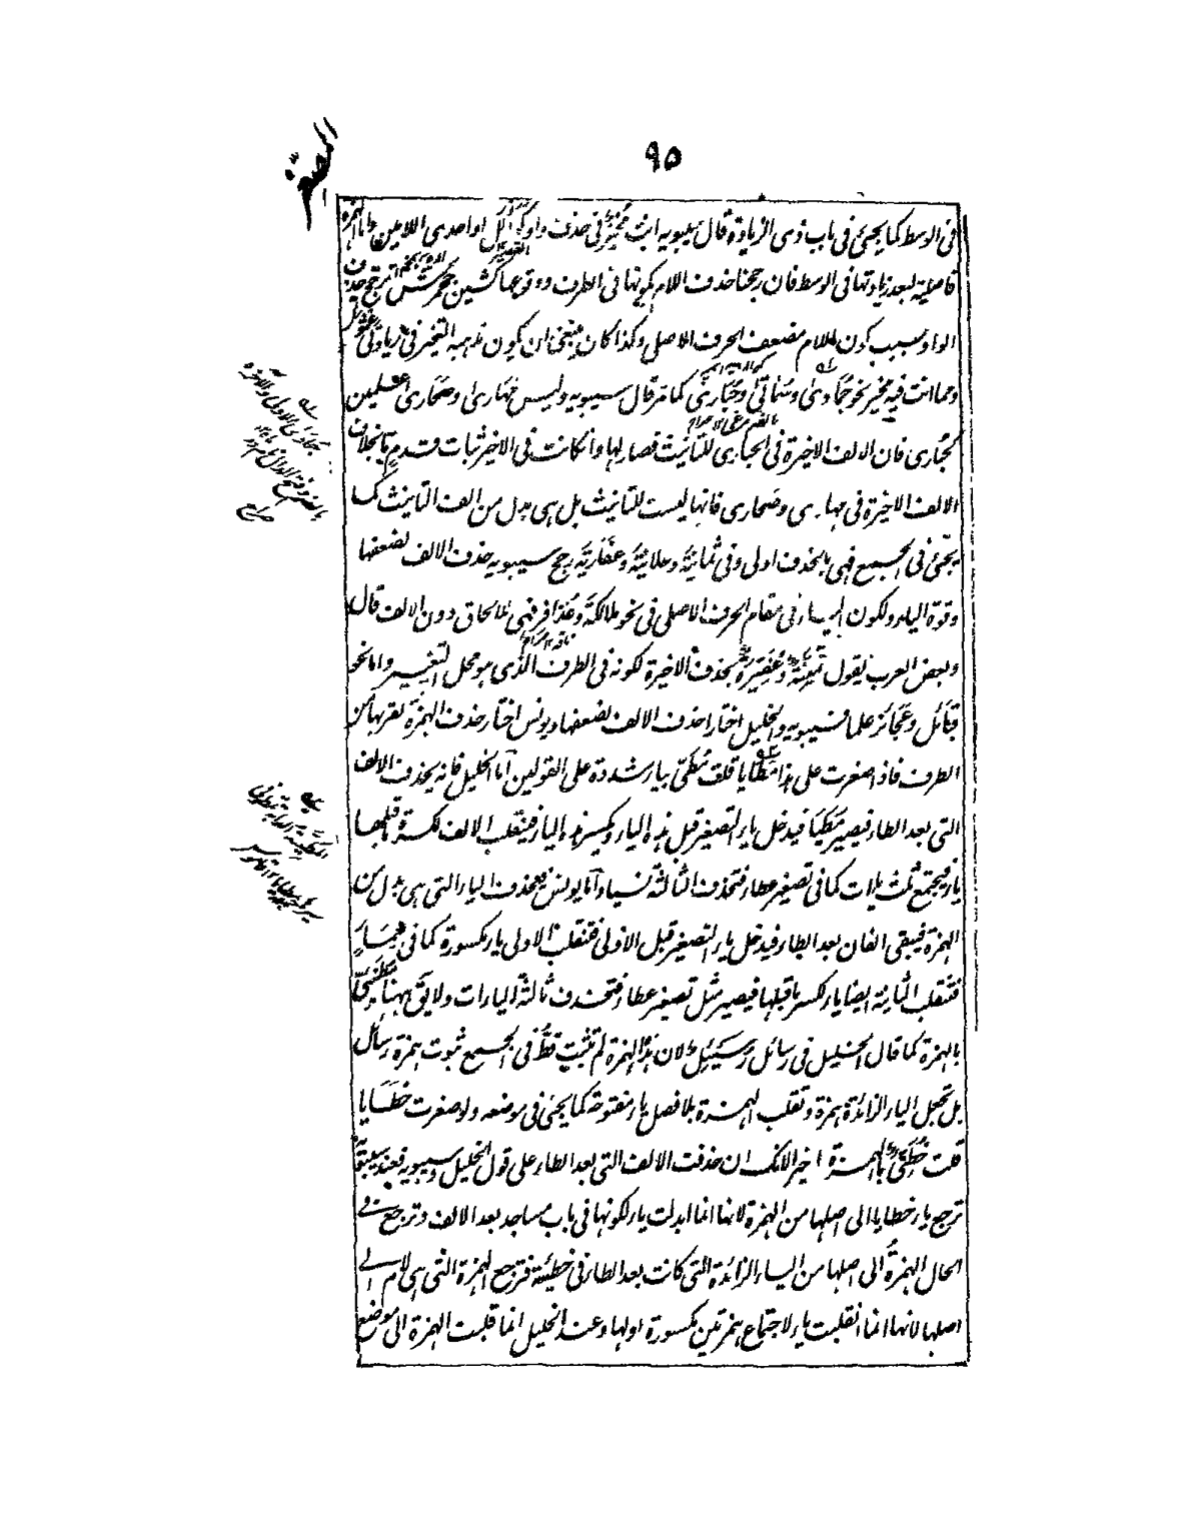 ٩٥
المصغر
فى الوسط كما يجئ فى باب ذى الزيادة قال سيبويه انت مُخيَّر فى حذف واو كوألل او احدى اللامين واما الهمزة
فاصلية لبعد زيادتها فى الوسط فان رجحنا حذف اللام بكونها فى الطرف ووقوعها كشين جحمرش ترجح حذف
الواو بسبب كون اللام مضعف الحرف الاصلى وكذا كان ينبغى ان يكون مذهبه التخيير فى زيادتى
ومما انت فيه مخير نحو جُمَادى وسُمَانى وحُبَارى كما مر قال سيبويه وليس مَهَارى وصَحَارى علمين
كحُبارى فان الالف الاخيرة فى الحبارى للتانيث فصار لها وان كانت فى الاخير ثبات قدم بخلاف
الالف الاخيرة فى مهارى وصحارى فانها ليست للتانيث بل هى بدل من الف التانيث كما
يجئ فى الجمع فهى بالحذف اولى وفى ثمانية وعلانية وعفارية رجح سيبويه حذف الالف لضعفها
وقوة الياء ولكون الياء فى مقام الحرف الاصلى فى نحو ملائكة وعُذافر فهى للالحاق دون الالف قال
وبعض العرب يقول ثُمَيِّنة وعُفَيِّرة بحذف الاخيرة لكونه فى الطرف الذى هو محل التغيير واما نحو
قبائل وعجائز علما فسيبويه والخليل اختارا حذف الالف لضعفها ويونس اختار حذف الهمزة لقربها من
الطرف فاذا صغرت على هذا مَطَايا قلت مُطَىّ بياء مشددة على القولين اما الخليل فانه يحذف الالف
التى بعد الطاء فيصير مَطَيَا فيدخل ياء التصغير قبل هذه الياء ويكسر هذه الياء فينقلب الالف لكسرة ما قبلها
ياء فيجتمع ثلث ياءات كما فى تصغير عطاء فتحذف الثالثة نسيا واما يونس فيحذف الياء التى هى بدل من
الهمزة فيبقى الفان بعد الطاء فيدخل ياء التصغير قبل الاولى فتنقلب الاولى ياء مكسورة كما فى حمار
فتنقلب الثانية ايضا ياء لكسر ما قبلها فيصير مثل تصغير عطاء فتحذف ثالثة الياءات ولا يقال ههنا مُطَيْئِىٌ
بالهمزة كما قال الخليل فى رسائل رُسَيئِل لان هذه الهمزة لم تثبت قطُّ فى الجمع ثبوت همزة رسائل
بل تجعل الياء الزائدة همزة وتقلب الهمزة بلا فصل ياء مفتوحة كما يجئ فى موضعه ولو صغرت خَطَايا
قلت خُطَيِّئٌ بالهمزة اخيرا لانك ان حذفت الالف التى بعد الطاء على قول الخليل وسيبويه فعند سيبويه
ترجع ياء خطايا الى اصلها من الهمزة لانها انما ابدلت ياء لكونها فى باب مساجد بعد الالف وترجع فى
الحال الهمزةُ الى اصلها من الياء الزائدة التى كانت بعد الطاء فى خطيئة فترجع الهمزة التى هى لام الى
اصلها لانها انما انقلبت ياء لاجتماع همزتين مكسورة اولها وعند الخليل انما قلبت الهمزة الى موضع